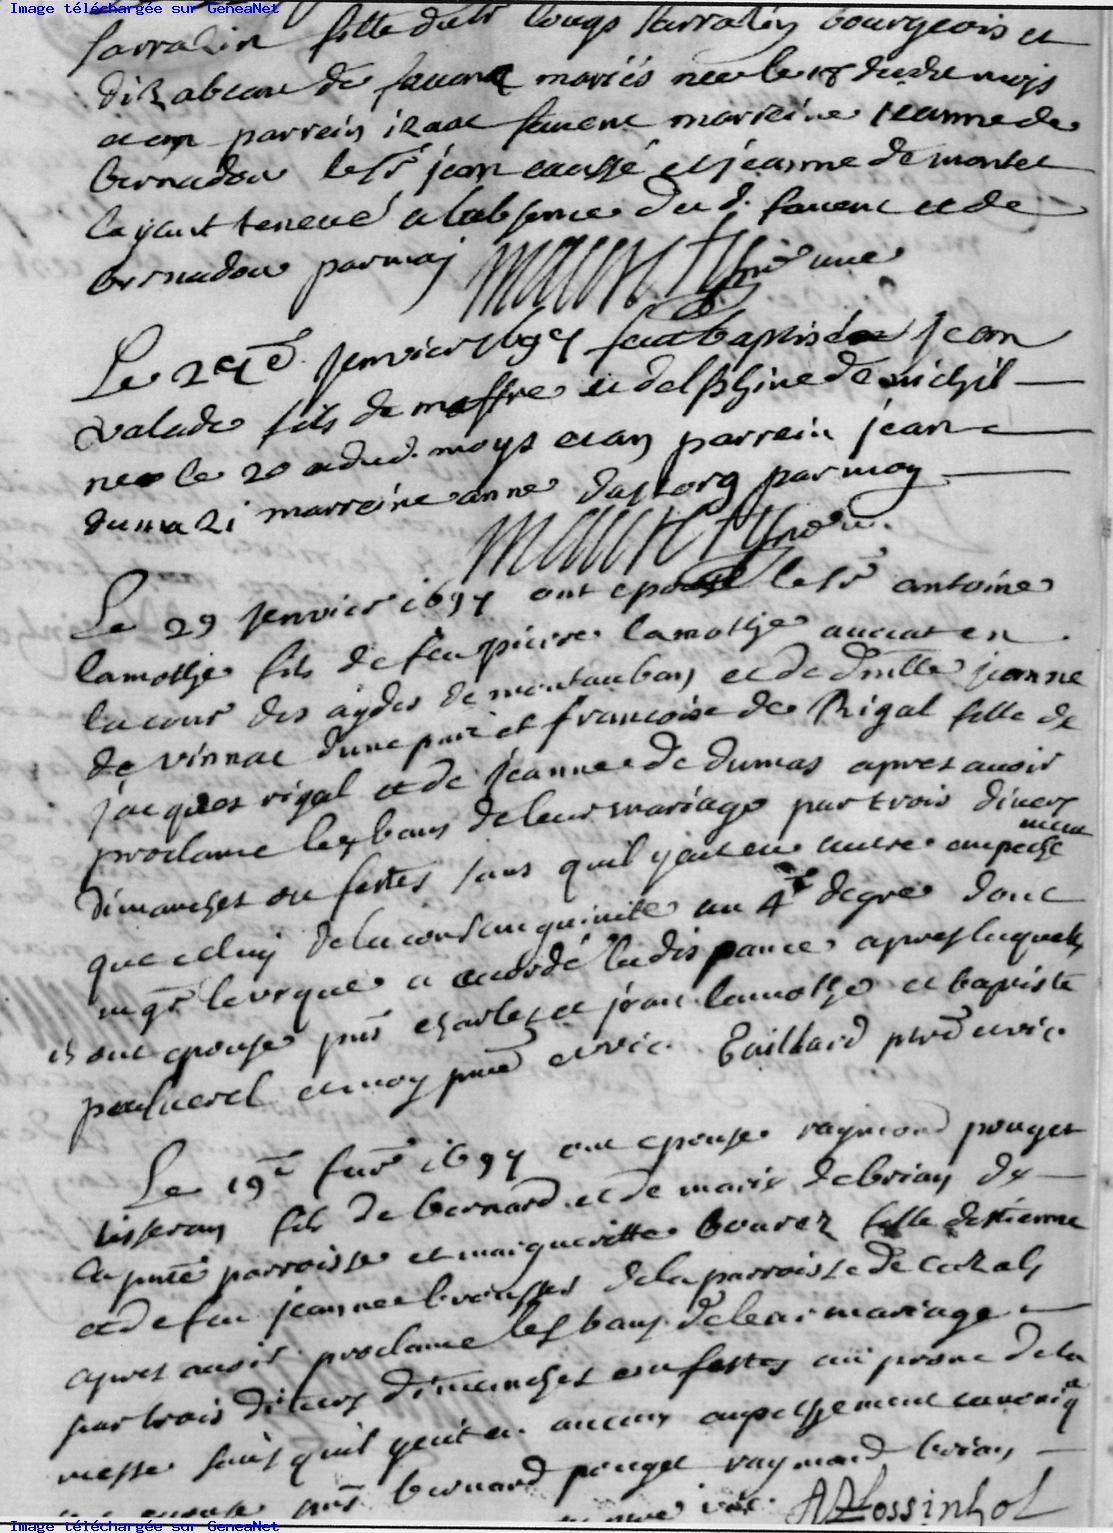 Image téléchargée sur GeneaNet
sarrazin fille du sr sarrazin bourgeois et
de mariés nee le 18 dudit moys
et an parrein izaac favenc marreine jeanne de
bernadou le sr jean caussé et jeanne de montet
layant teneue a labsence du d. favenc et de
bernadou par moy
Le janvier 1697 feut baptisé jean
valade fils de maffre et delphine de michil
nee le 20 dud. moys et an parrein jean
dumazi marreine anne dastorg par moy
Le 29 janvier 1697 ont epousé le sr antoine
lamothe fils de feu pierre lamothe avocat en
la cour des aydes de montauban et de dmlle jeanne
de vinnac dune part et francoise de Rigal fille de
jacques rigal et de jeanne de dumas apres avoir
proclame les bans de leur mariage par trois divers
dimanches ou festes sans quil y ait eu autre empeche
ment
que celuy de la consanguinité au 4e degre dont
mgr leveque a accordé la dispance apres laquelle
ils ont epousé pnts charles et jean lamothe et baptiste
et moy pntre et vic. Taillard ptre vic.
Le 19e fevr 1697 ont epousé raymond pouget
tisseran fils de bernard et de marie debrian de
la pnte parroisse et margueritte bourez fille destienne
et de feu jeanne de la parroisse de cazals
apres avoir proclame les bans de leur mariage
par trois divers dimanches ou festes au prone de la
messe sans quil y eut eu aucun empechement canoniq
e
epousé pnts bernard pouget raymond brian
vic. Rossinhol
Image téléchargée sur GeneaNet